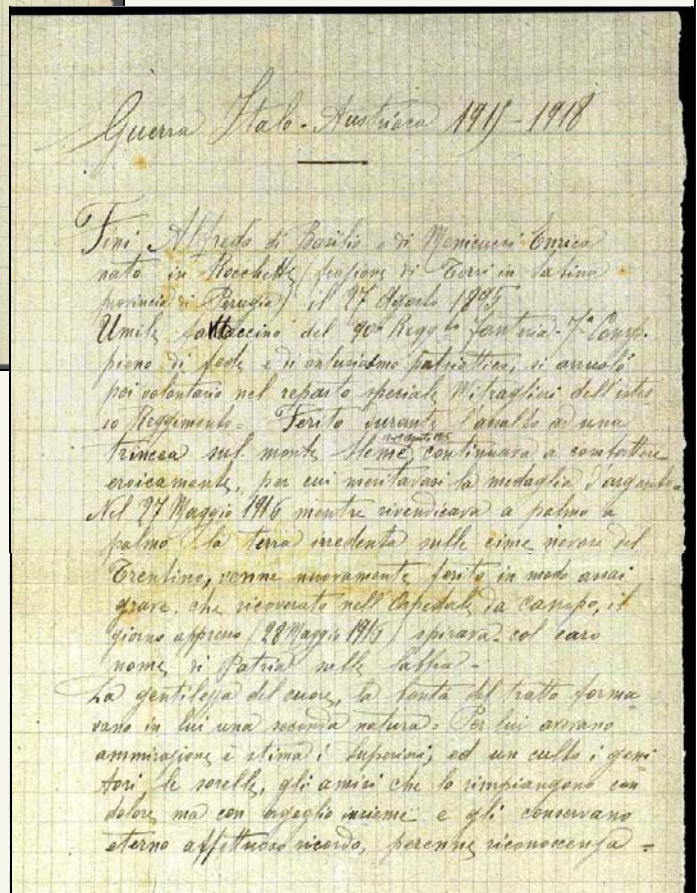 Guerra Italo-Austriaca 1915-1918
Fini Alfredo di Basilio e di Menicucci Enrica
nato in Rocchette (frazione di Torri in Sabina
provincia di Perugia) il 27 Agosto 1895
Umile fantaccino del 90° Regg.to fanteria - 7a Comp.
pieno di fede e di entusiasmo patriottico, si arruolò
poi volontario nel reparto speciale Mitraglieri dell'istes
so Reggimento = Ferito durante l'assalto ad una
Agosto 1915
trincea sul monte Sleme, continuava a combattere
eroicamente, per cui meritavasi la medaglia d'argento =
Nel 27 Maggio 1916 mentre rivendicava a palmo a
palmo la terra irredenta sulle cime nevose del
Trentino, venne nuovamente ferito in modo assai
grave, che ricoverato nell'Ospedale da campo, il
giorno appresso (28 Maggio 1916) spirava col caro
nome di Patria sulle labbra =
La gentilezza del cuore, la bontà del tratto forma
vano in lui una seconda natura = Per lui avevano
ammirazione e stima i superiori; ed un culto i geni
tori, le sorelle, gli amici che lo rimpiangono con
dolore ma con orgoglio insieme e gli conservano
eterno affettuoso ricordo, perenne riconoscenza =